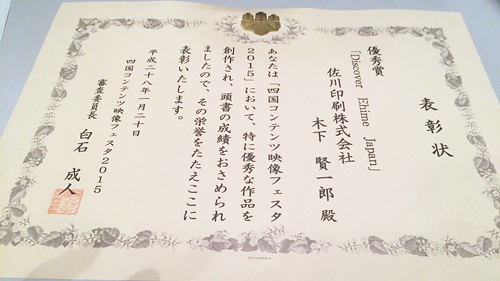 表彰状
優秀賞
「Discover Ehime Japan」
佐川印刷株式会社
木下 賢一郎 殿
あなたは「四国コンテンツ映像フェスタ
2015」において、特に優秀な作品を
創作され、頭書の成績をおさめられ
ましたので、その栄誉をたたえここに
表彰いたします。
平成二十八年一月二十日
四国コンテンツ映像フェスタ2015
審査委員長 白石 成人